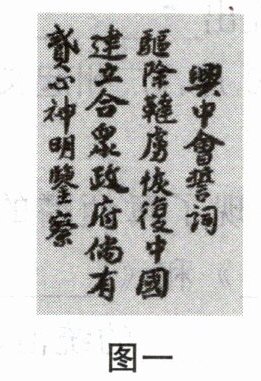 興中會誓詞
驅除韃虜恢復中國
建立合衆政府倘有
貳心神明鑒察
图一